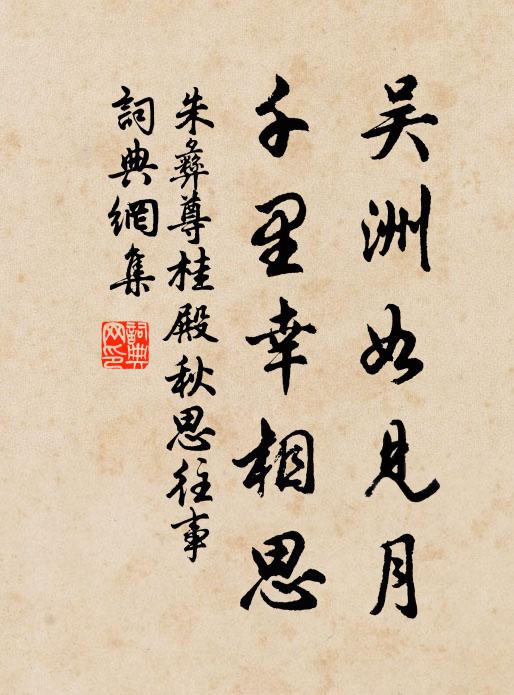 吴洲如見月
千里幸相思
朱彝尊桂殿秋思往事
詞典網集
詞典網印